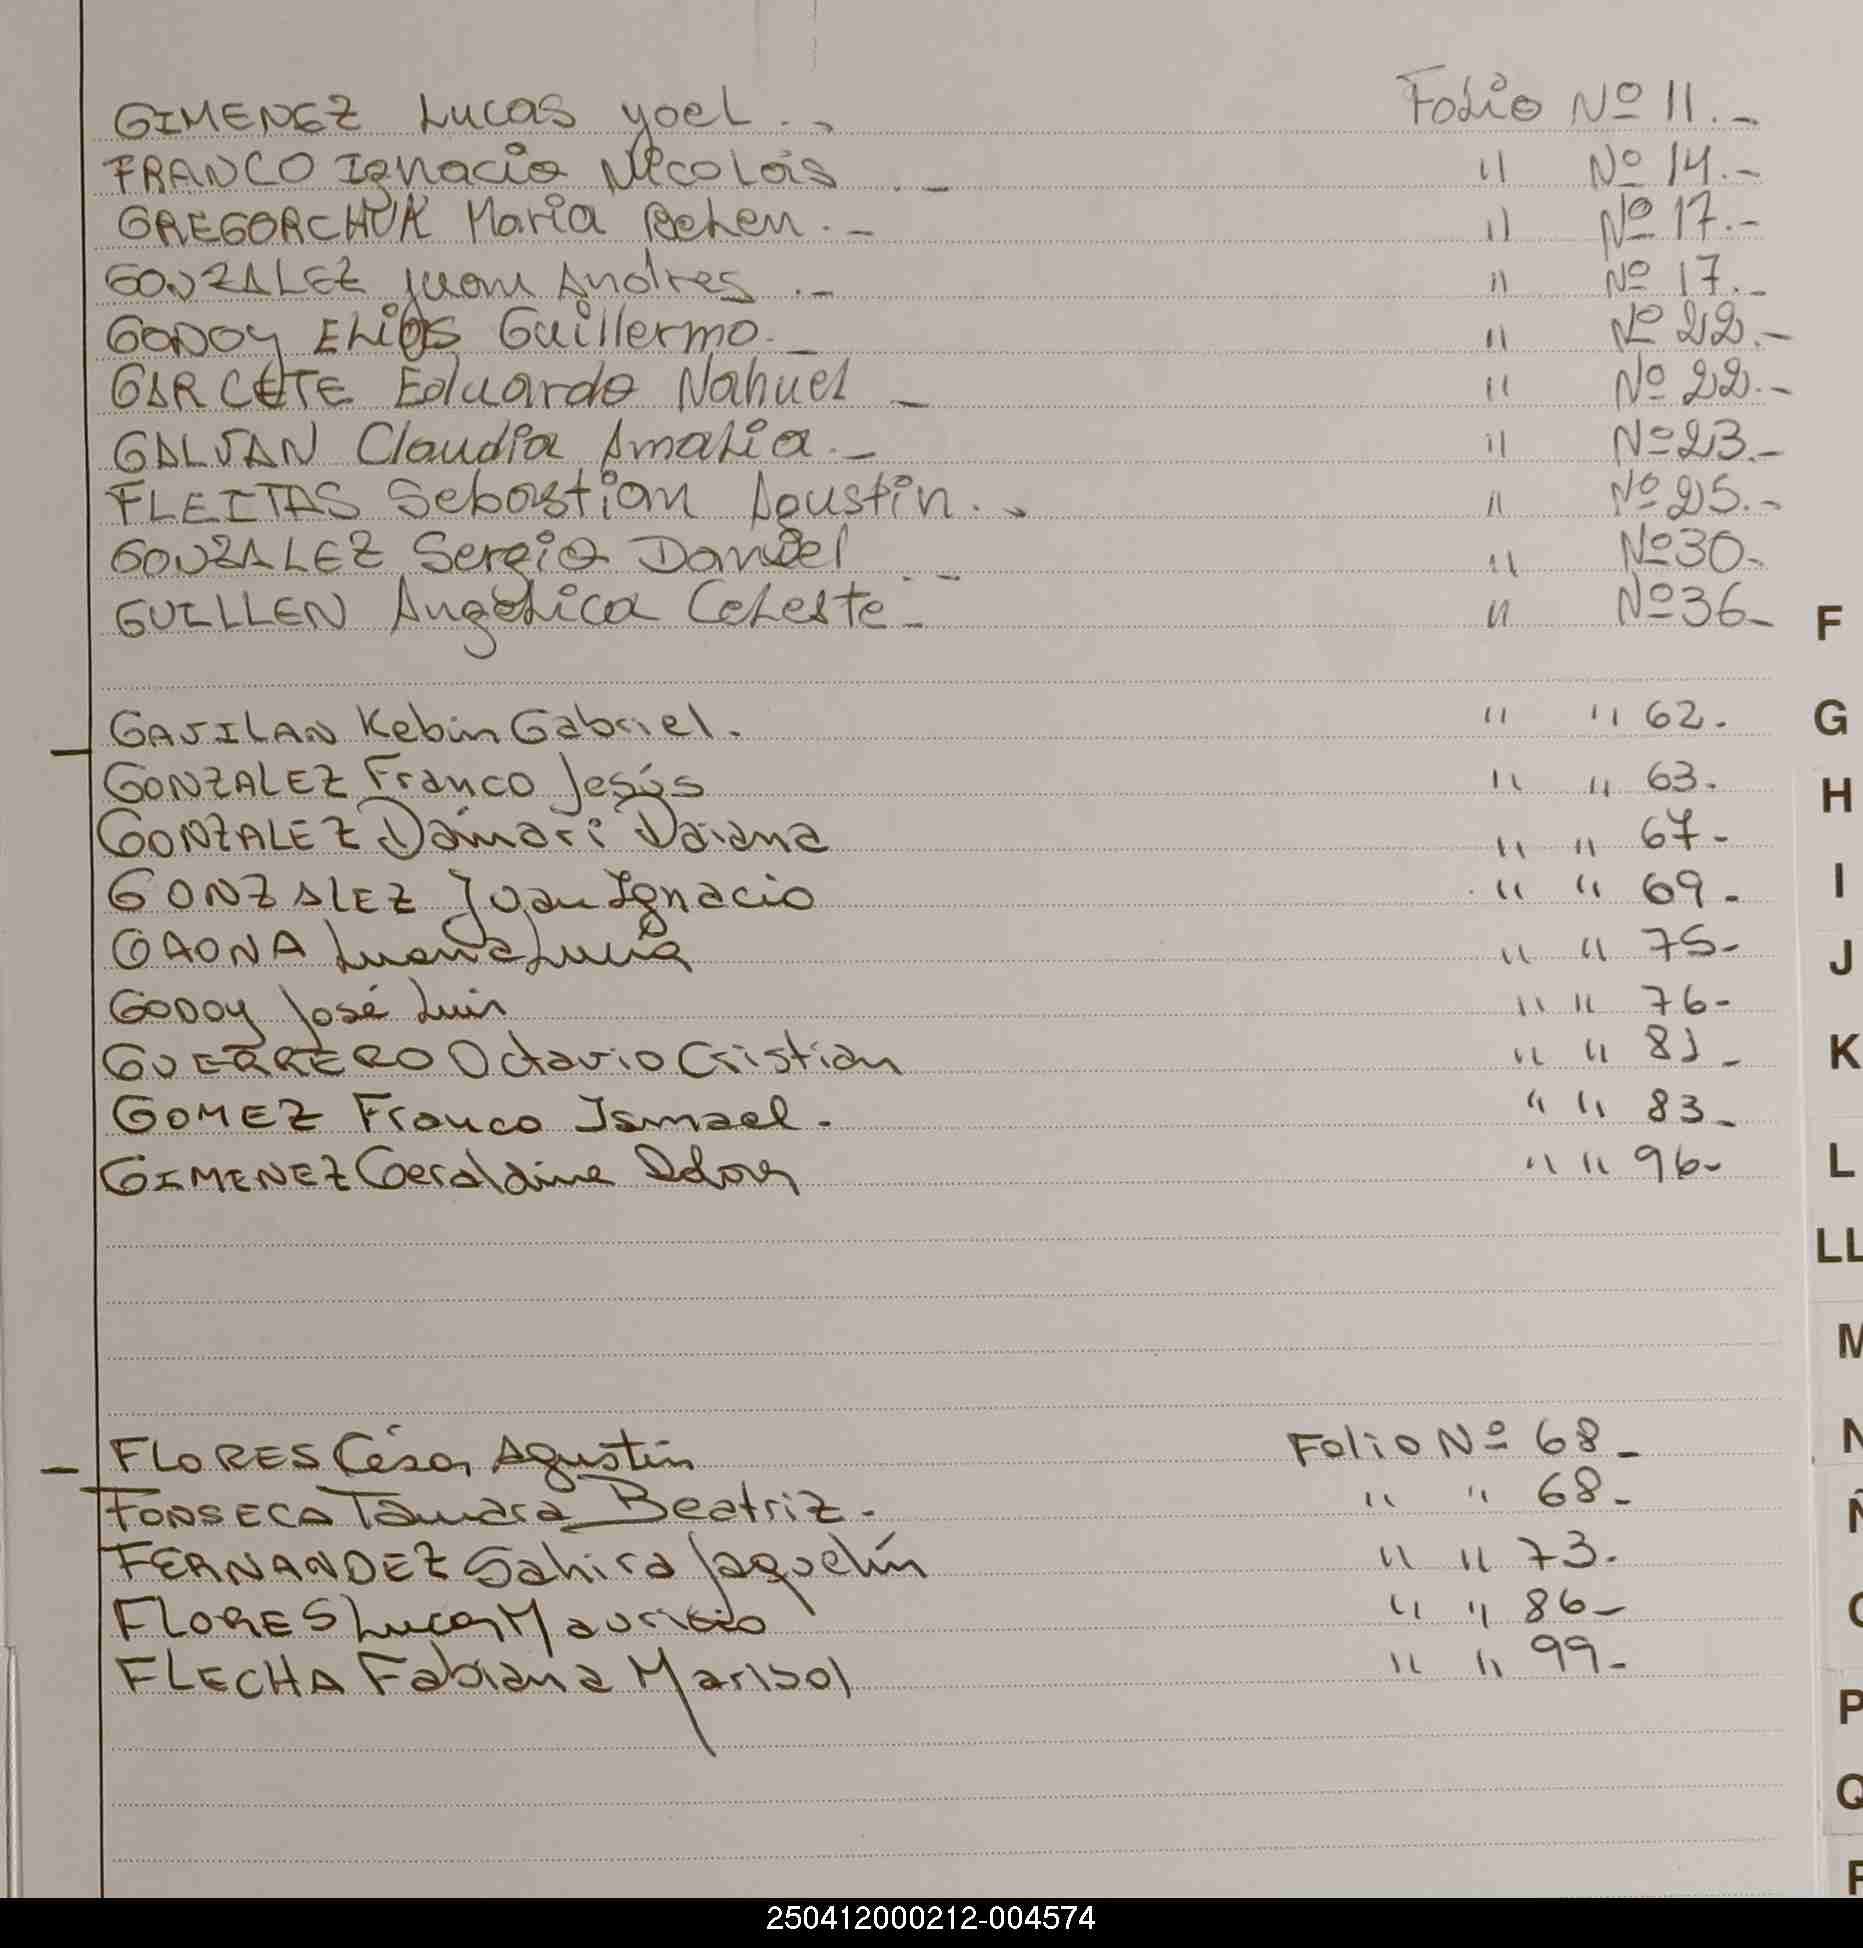 GIMENEZ Lucas yoel.- Folio Nº 11.-
FRANCO Ignacio Nicolás.- " Nº 14.-
GREGORCHUK Maria Belen.- " Nº 17.-
GONZALEZ Juan Andres.- " Nº 17.-
GODOY Elias Guillermo.- " Nº 22.-
GARCETE Eduardo Nahuel - " Nº 22.-
GALVAN Claudia Amalia.- " Nº 23.-
FLEITAS Sebastian Agustin.- " Nº 25.-
GONZALEZ Sergio Daniel.- " Nº 30-
GUILLEN Angélica Celeste- " Nº 36-
F
GAVILAN Kebin Gabriel. " " 62.
G
GONZALEZ Franco Jesús " " 63.
H
GONZALEZ Damari Daiana " " 67-
GONZALEZ Juan Ignacio " " 69-
I
GAONA Luana Lucia " " 75-
J
GODOY José Luis " " 76-
GUERRERO Octavio Cristian " " 81-
K
GOMEZ Franco Ismael. " " 83-
GIMENEZ Geraldine " " 96-
L
LL
M
N
- FLORES César Agustin Folio Nº 68-
FONSECA Tamara Beatriz. " " 68-
Ñ
FERNANDEZ Sahira Jaquelín " " 73.
FLORES Lucas Mauricio " " 86-
O
FLECHA Fabiana Marisol " " 99-
P
Q
R
250412000212-004574